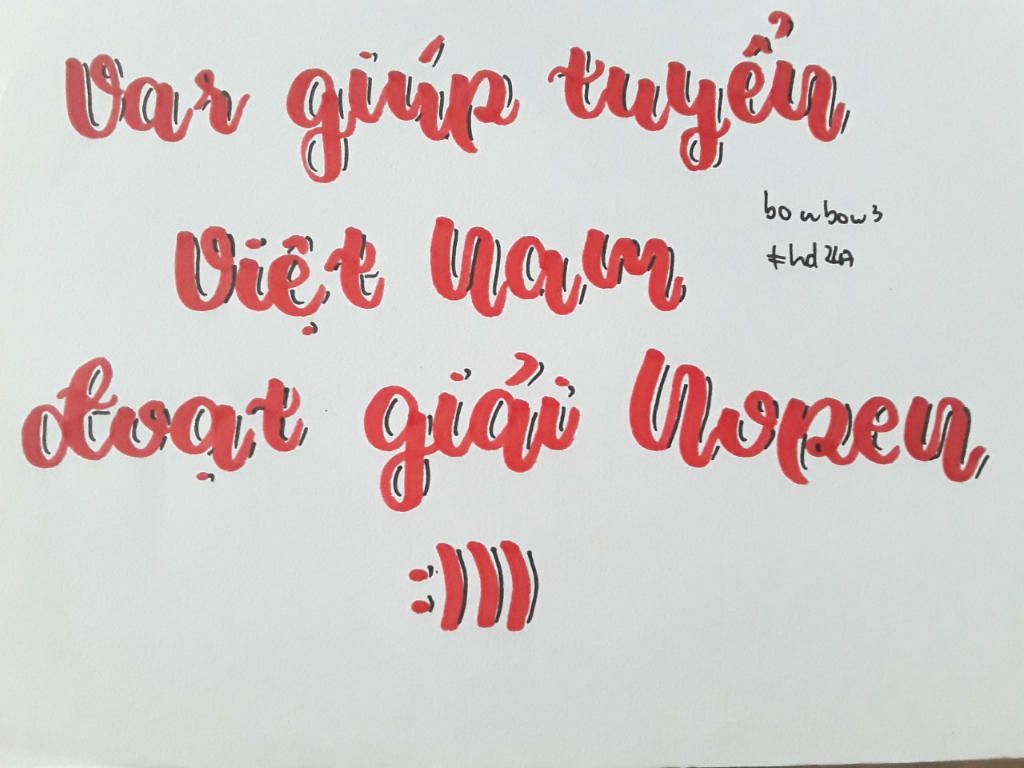 Var giúp tuyển
Việt Nam
đoạt giải Nopen
:)))
bowbow3
#hd24A